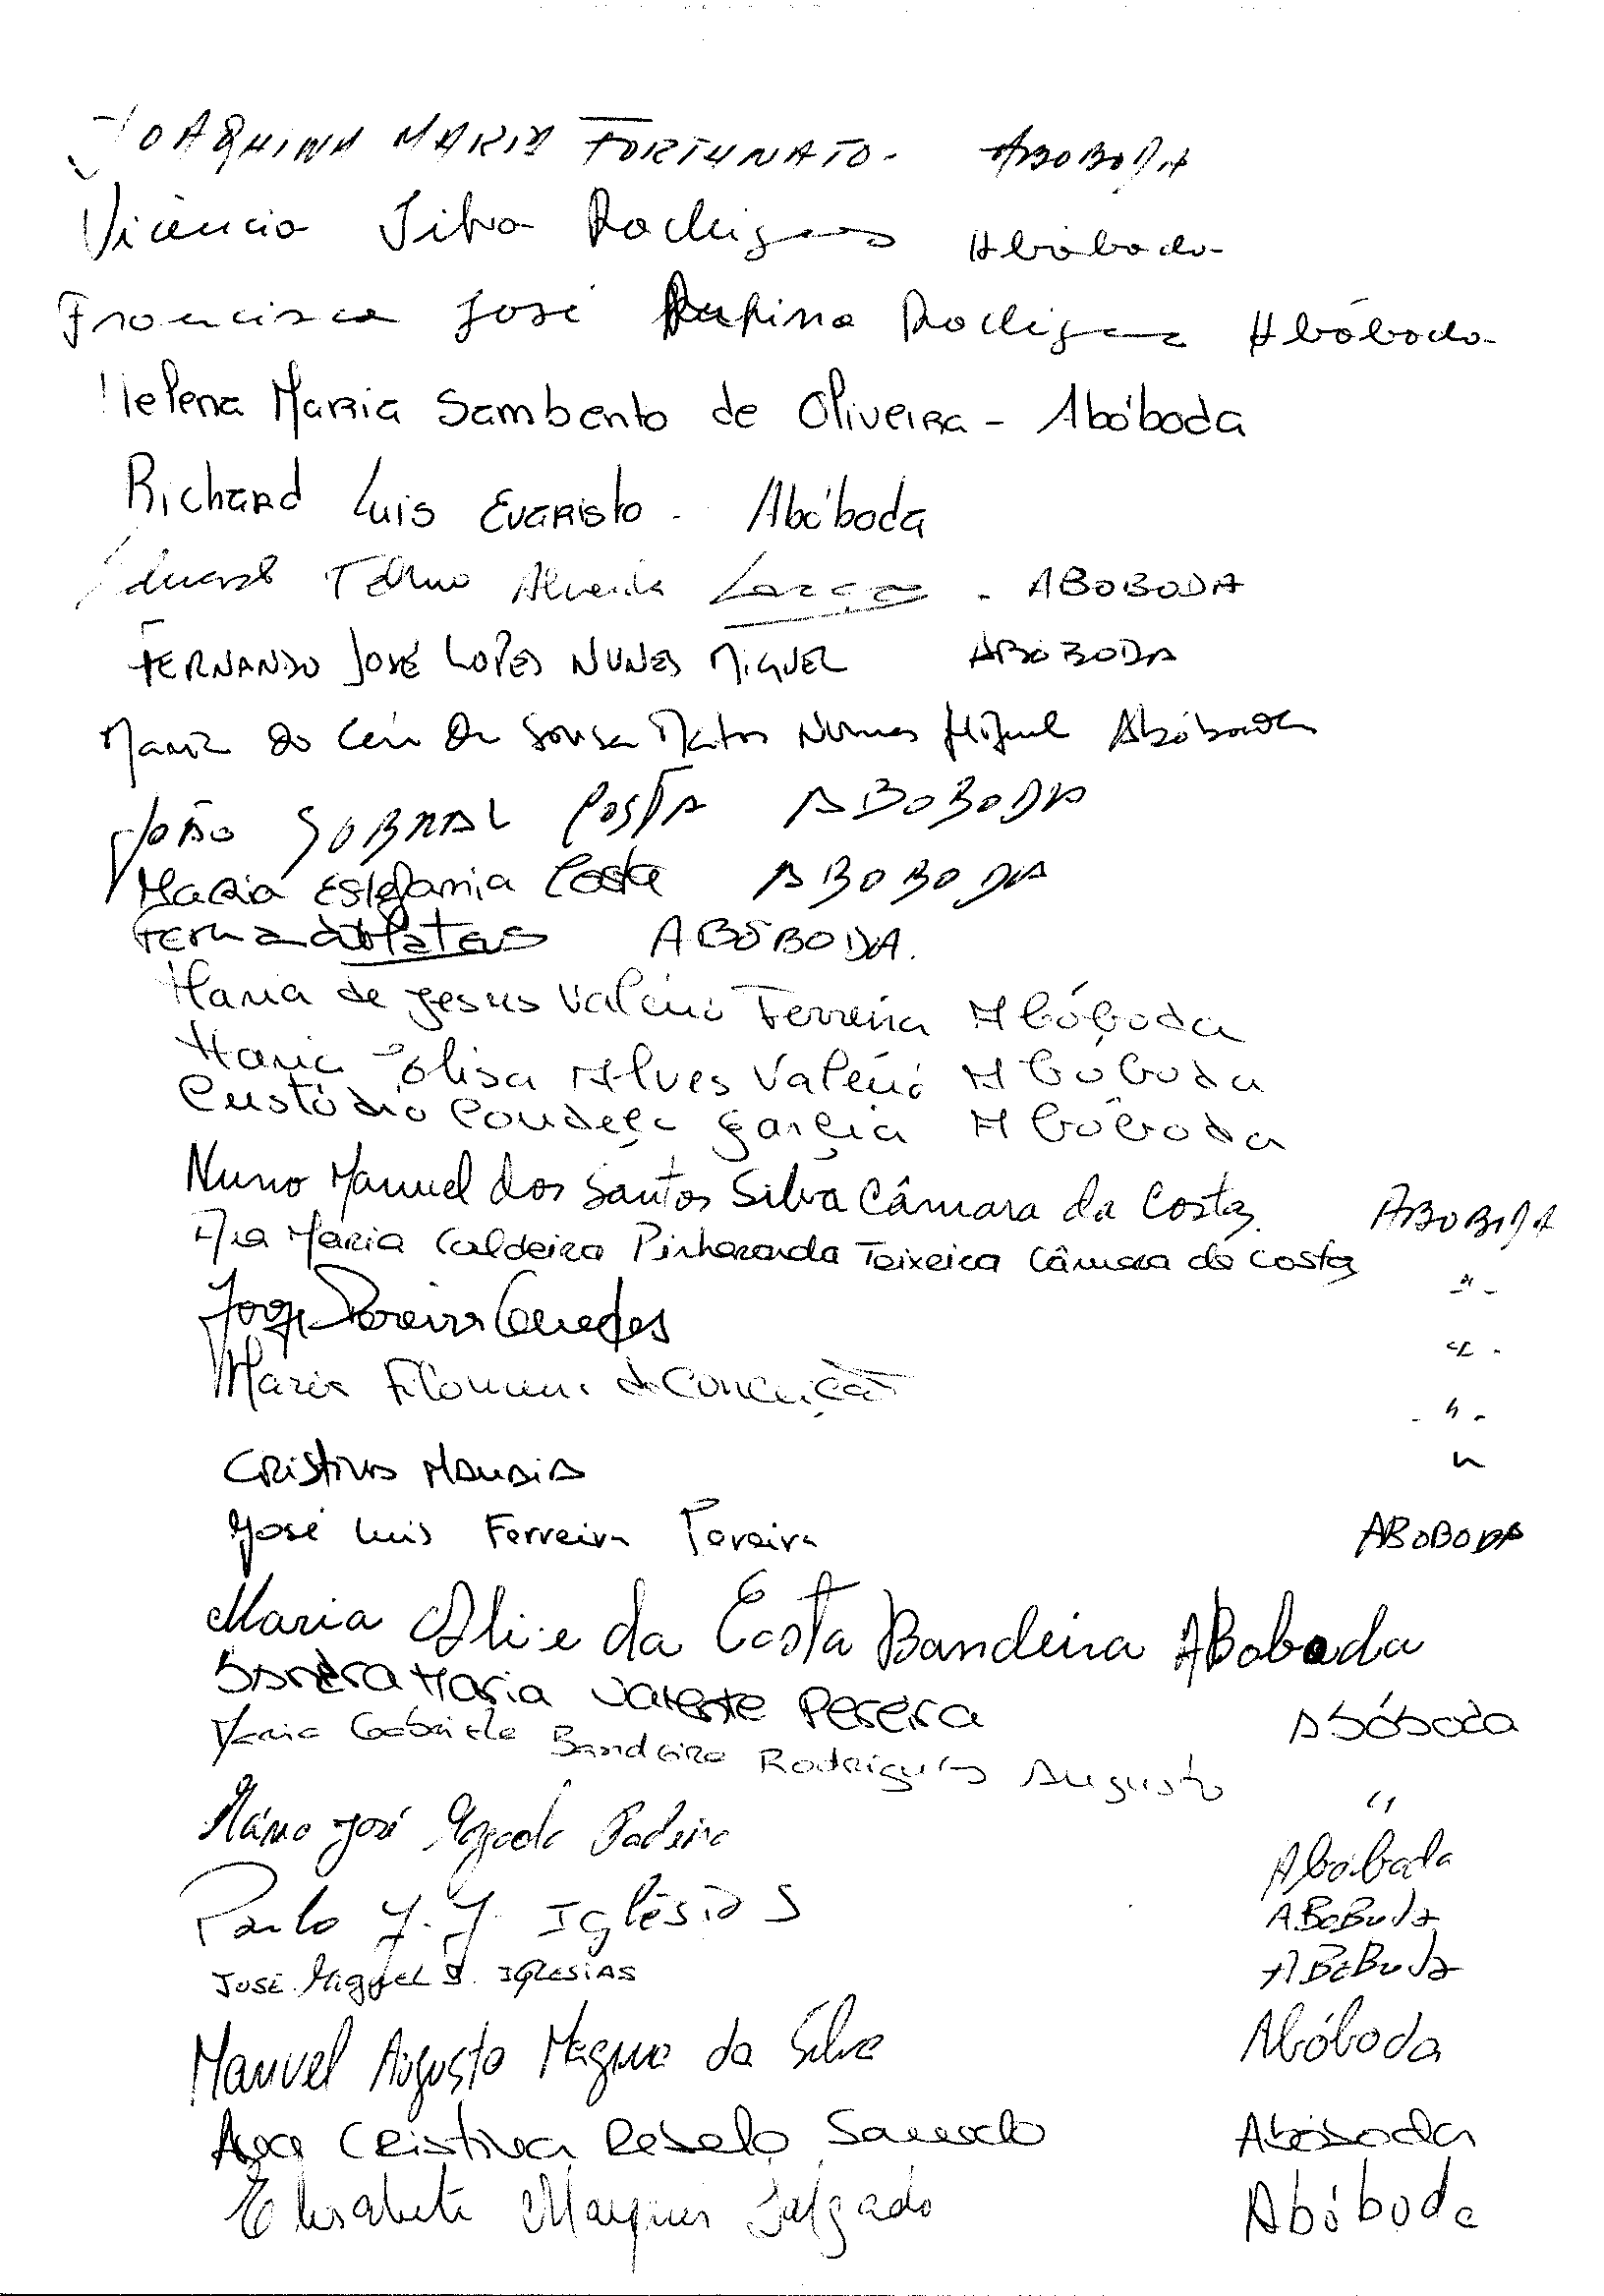 JOAQUINA MARIA FORTUNATO - ABOBODA
Vicência Silva Rodrigues Abóboda
Francisca José Rufina Rodrigues Abóboda
Helena Maria Sambento de Oliveira - Abóboda
Richard Luis Evaristo - Abóboda
Telmo Almeida - ABOBODA
FERNANDO JOSÉ LOPES NUNES MIGUEL ABÓBODA
Maria do Céu de Sousa Matos Nunes Miguel Abóboda
JOÃO SOBRAL COSTA ABOBODA
Maria Estefania Costa ABOBODA
ABÓBODA.
Maria de Jesus Valério Ferreira Abóboda
Maria Elisa Alves Valério Abóboda
Custódio Condeça Garcia Abóboda
Nuno Manuel dos Santos Silva Câmara da Costa ABOBODA
Ana Maria Caldeira Pinharanda Teixeira Câmara da Costa - " -
Jorge Pereira Guedes " -
Maria Filomena da Conceição - " -
Cristina "
José Luis Ferreira Pereira ABOBODA
Maria Alice da Costa Bandeira ABoboda
Sandra Maria Valente Pereira Abóboda
Maria Gabriela Bandeira Rodrigues Augusto "
Mário José Padeira Abóboda
Paulo J. J. Iglésias ABoBoda
José Miguel J. IGLESIAS ABoBoda
Manuel Augusto Magno da Silva Abóboda
Ana Cristina Rebelo Abóboda
Elisabete Marques Salgado Abóboda